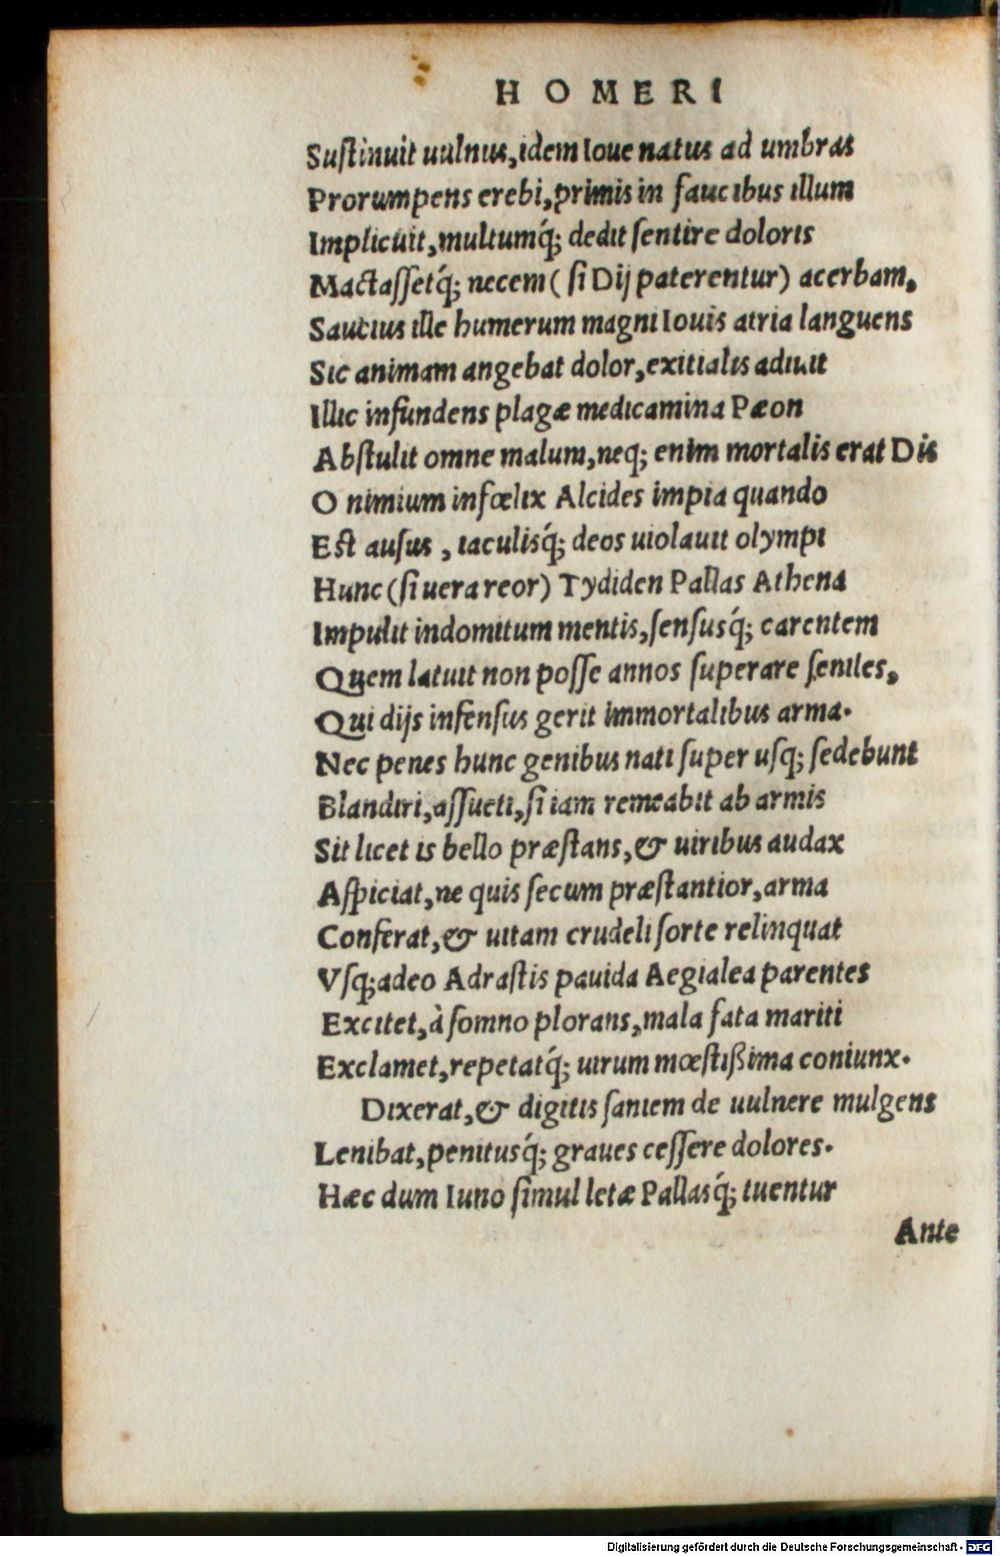 HOMERI
Suſtinuit uulnus, idem Ioue natus ad umbras
Prorumpens erebi, primis in faucibus illum
Implicuit, multumq́; dedit ſentire doloris
Mactaſſetq́; necem ( ſi Dij paterentur) acerbam,
Saucius ille humerum magni Iouis atria languens
Sic animam angebat dolor, exitialis adiuit
Illic infundens plagæ medicamina Pæon
Abſtulit omne malum, neq; enim mortalis erat Dis
O nimium infœlix Alcides impia quando
Eſt auſus , iaculisq́; deos uiolauit olympi
Hunc (ſi uera reor) Tydiden Pallas Athena
Impulit indomitum mentis, ſensusq́; carentem
Quem latuit non poſſe annos ſuperare ſeniles,
Qui dijs infenſus gerit immortalibus arma.
Nec penes hunc genibus nati ſuper uſq; ſedebunt
Blandiri, aſſueti, ſi iam remeabit ab armis
Sit licet is bello præſtans, & uiribus audax
Aſpiciat, ne quis ſecum præſtantior, arma
Conferat, & uitam crudeli ſorte relinquat
Vſq; adeo Adraſtis pauida Aegialea parentes
Excitet, à ſomno plorans, mala fata mariti
Exclamet, repetatq́; uirum mœſtißima coniunx.
Dixerat, & digitis ſaniem de uulnere mulgens
Lenibat, penitusq́; graues ceſſere dolores.
Hæc dum Iuno ſimul letæ Pallasq́; tuentur
Ante
Digitalisierung gefördert durch die Deutsche Forschungsgemeinschaft - DFG